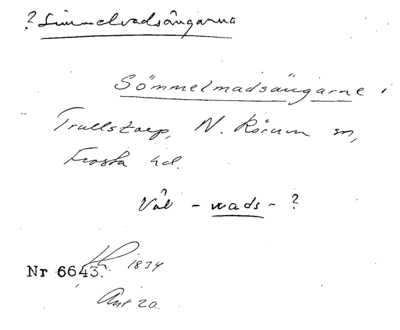 ? Simmelvadsängarna
Sömmelmadsängarne i
Trullstorp, N. Rörum sn,
Frosta hd.
Väl - wads - ?
Nr 6643. 1834
Ant 20.